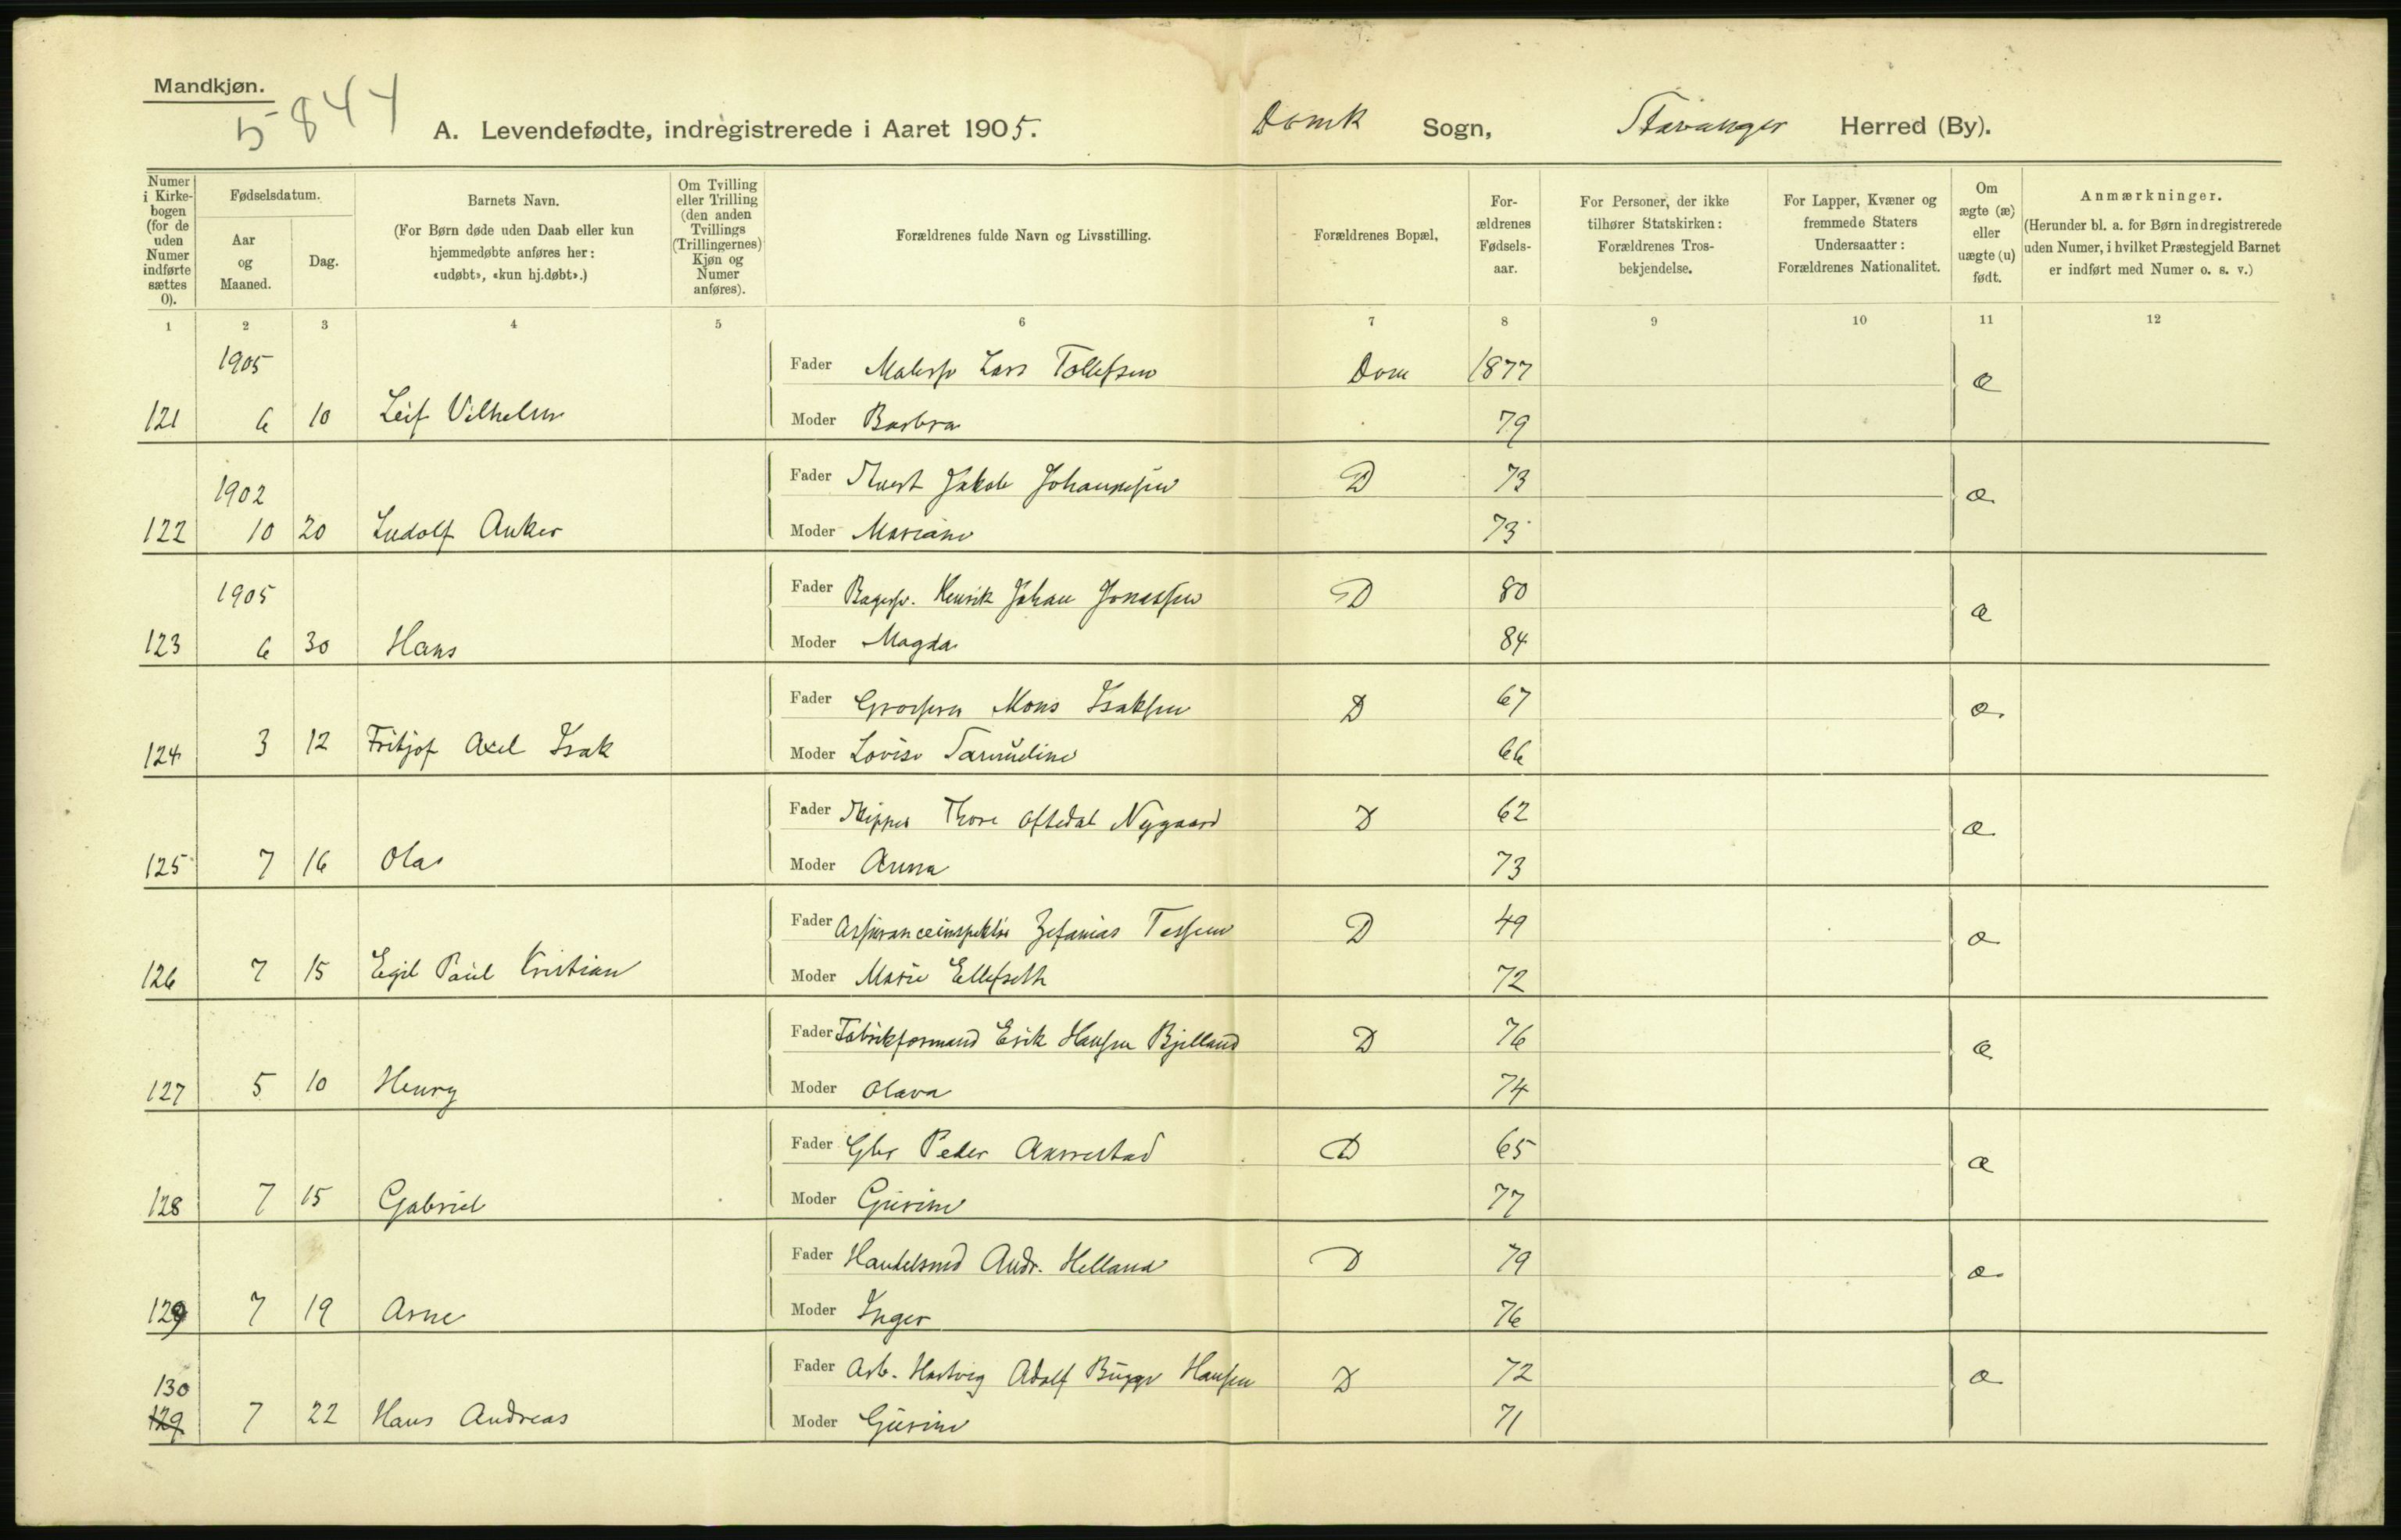 Mandkjøn.
5844
A. Levendefødte, indregistrerede i Aaret 1905. Domk Sogn, Stavanger Herred (By).
Numer i Kirkebogen (for de uden Numer indførte sættes 0).
Fødselsdatum.
Aar og Maaned.
Dag.
Barnets Navn.
(For Børn døde uden Daab eller kun hjemmedøbte anføres her: «udøbt», «kun hj.døbt».)
Om Tvilling eller Trilling (den anden Tvillings (Trillingernes) Kjøn og Numer anføres).
Forældrenes fulde Navn og Livsstilling.
Forældrenes Bopæl,
Forældrenes Fødselsaar.
For Personer, der ikke tilhører Statskirken: Forældrenes Trosbekjendelse.
For Lapper, Kvæner og fremmede Staters Undersaatter: Forældrenes Nationalitet.
Om ægte (æ) eller uægte (u) født.
Anmærkninger.
(Herunder bl. a. for Børn indregistrerede uden Numer, i hvilket Præstegjeld Barnet er indført med Numer o. s. v.)
1 2 3 4 5 6 7 8 9 10 11 12
1905 Fader Malersv Lars Tollefsen Dom 1877 æ
121 6 10 Leif Vilhelm Moder Barbra 79
1902 Fader Jakob Johannesen D 73 æ
122 10 20 Ludolf Anker Moder Mariane 73
1905 Fader Bagersv. Henrik Johan Jonassen D 80 æ
123 6 30 Hans Moder Magda 84
Fader Grosserer Mons Isaksen D 67 æ
124 3 12 Fritjof Axel Isak Moder Lovise 66
Fader Skipper Thore Aftedal Nygaard D 62 æ
125 7 16 Olaf Moder Anna 73
Fader Assuranceinspektør Zefanias Tessem D 49 æ
126 7 15 Egil Paul Kristian Moder Marie Ellefseth 72
Fader Fabrikformand Erik Hansen Bjelland D 76 æ
127 5 10 Henry Moder Olava 74
Fader Gbr Peder Aarrestad D 65 æ
128 7 15 Gabriel Moder Gurine 77
Fader Handelsmd Andr. Helland D 79 æ
129 7 19 Arne Moder Inger 76
130 Fader Arb. Hartvig Adolf Bugge Hansen D 72 æ
129 7 22 Hans Andreas Moder Gurine 71